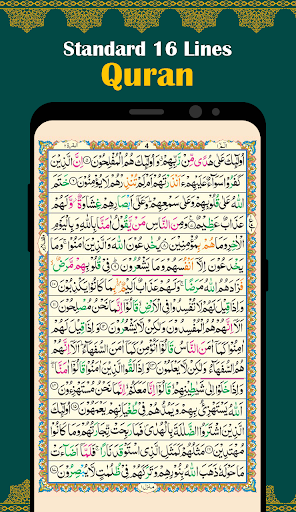 Standard 16 Lines
Quran
4
اُولٰٓئِكَ عَلٰى هُدًى مِّنْ رَّبِّهِمْ وَاُولٰٓئِكَ هُمُ الْمُفْلِحُوْنَ اِنَّ الَّذِيْنَ
كَفَرُوْا سَوَآءٌ عَلَيْهِمْ ءَاَنْذَرْتَهُمْ اَمْ لَمْ تُنْذِرْهُمْ لَا يُؤْمِنُوْنَ خَتَمَ
اللّٰهُ عَلٰى قُلُوْبِهِمْ وَعَلٰى سَمْعِهِمْ وَعَلٰٓى اَبْصَارِهِمْ غِشَاوَةٌ وَّلَهُمْ
عَذَابٌ عَظِيْمٌ وَمِنَ النَّاسِ مَنْ يَّقُوْلُ اٰمَنَّا بِاللّٰهِ وَبِالْيَوْمِ
الْاٰخِرِ وَمَا هُمْ بِمُؤْمِنِيْنَ يُخٰدِعُوْنَ اللّٰهَ وَالَّذِيْنَ اٰمَنُوْا وَمَا
يَخْدَعُوْنَ اِلَّآ اَنْفُسَهُمْ وَمَا يَشْعُرُوْنَ فِيْ قُلُوْبِهِمْ مَّرَضٌ
فَزَادَهُمُ اللّٰهُ مَرَضًا وَلَهُمْ عَذَابٌ اَلِيْمٌ بِمَا كَانُوْا يَكْذِبُوْنَ
وَاِذَا قِيْلَ لَهُمْ لَا تُفْسِدُوْا فِي الْاَرْضِ قَالُوْٓا اِنَّمَا نَحْنُ مُصْلِحُوْنَ
اَلَآ اِنَّهُمْ هُمُ الْمُفْسِدُوْنَ وَلٰكِنْ لَّا يَشْعُرُوْنَ وَاِذَا قِيْلَ لَهُمْ
اٰمِنُوْا كَمَآ اٰمَنَ النَّاسُ قَالُوْٓا اَنُؤْمِنُ كَمَآ اٰمَنَ السُّفَهَآءُ اَلَآ اِنَّهُمْ
هُمُ السُّفَهَآءُ وَلٰكِنْ لَّا يَعْلَمُوْنَ وَاِذَا لَقُوا الَّذِيْنَ اٰمَنُوْا قَالُوْٓا اٰمَنَّا
وَاِذَا خَلَوْا اِلٰى شَيٰطِيْنِهِمْ قَالُوْٓا اِنَّا مَعَكُمْ اِنَّمَا نَحْنُ مُسْتَهْزِءُوْنَ
اَللّٰهُ يَسْتَهْزِئُ بِهِمْ وَيَمُدُّهُمْ فِيْ طُغْيَانِهِمْ يَعْمَهُوْنَ اُولٰٓئِكَ
الَّذِيْنَ اشْتَرَوُا الضَّلٰلَةَ بِالْهُدٰى فَمَا رَبِحَتْ تِّجَارَتُهُمْ وَمَا كَانُوْا
مُهْتَدِيْنَ مَثَلُهُمْ كَمَثَلِ الَّذِي اسْتَوْقَدَ نَارًا فَلَمَّآ اَضَآءَتْ
مَا حَوْلَهٗ ذَهَبَ اللّٰهُ بِنُوْرِهِمْ وَتَرَكَهُمْ فِيْ ظُلُمٰتٍ لَّا يُبْصِرُوْنَ